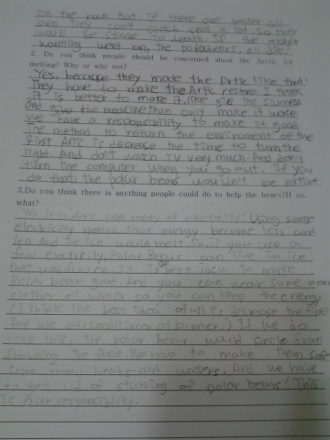 on the rock. But if there are water all
over. They can't catch seals a lot. So they
would be starve to death. If the global
warming went on, the polarbears all die!
2. Do you think people should be concerned about the Arctic ice
melting? Why or why not?
Yes, because they made the Artic like that!
They have to make the Artic restore. I think
it is better to make it, like give the sickness
and give the medicine than only make it worse
we have a responsibility to make it good
The method to return the environment of the
first Artic is decrease the time to turn the
light. And don't watch TV very much. And don't
turn the computer when you go out. If you
do that the polar bears wouldn't be extint.
3.Do you think there is anything people could do to help the bears?If so,
what?
Yes. It is don't use many of electricity. Using some
electricity means that energy become less and
less And the ice would melt. So, if you use a
few elatricity, Polar bears can live in ice
that was frozen. It is best idea to make
Polar bear good. And you can wear same more
clothes at winter so you can keep the energy
(I think the best idea of all is decrease the time
for use airconditioner at summer.) If we do
like this, the polar bear would smile from
the face. We have to make them safe
from heat and waters. And we have
to get rid of starving of polar bears! This
is our responsibility.